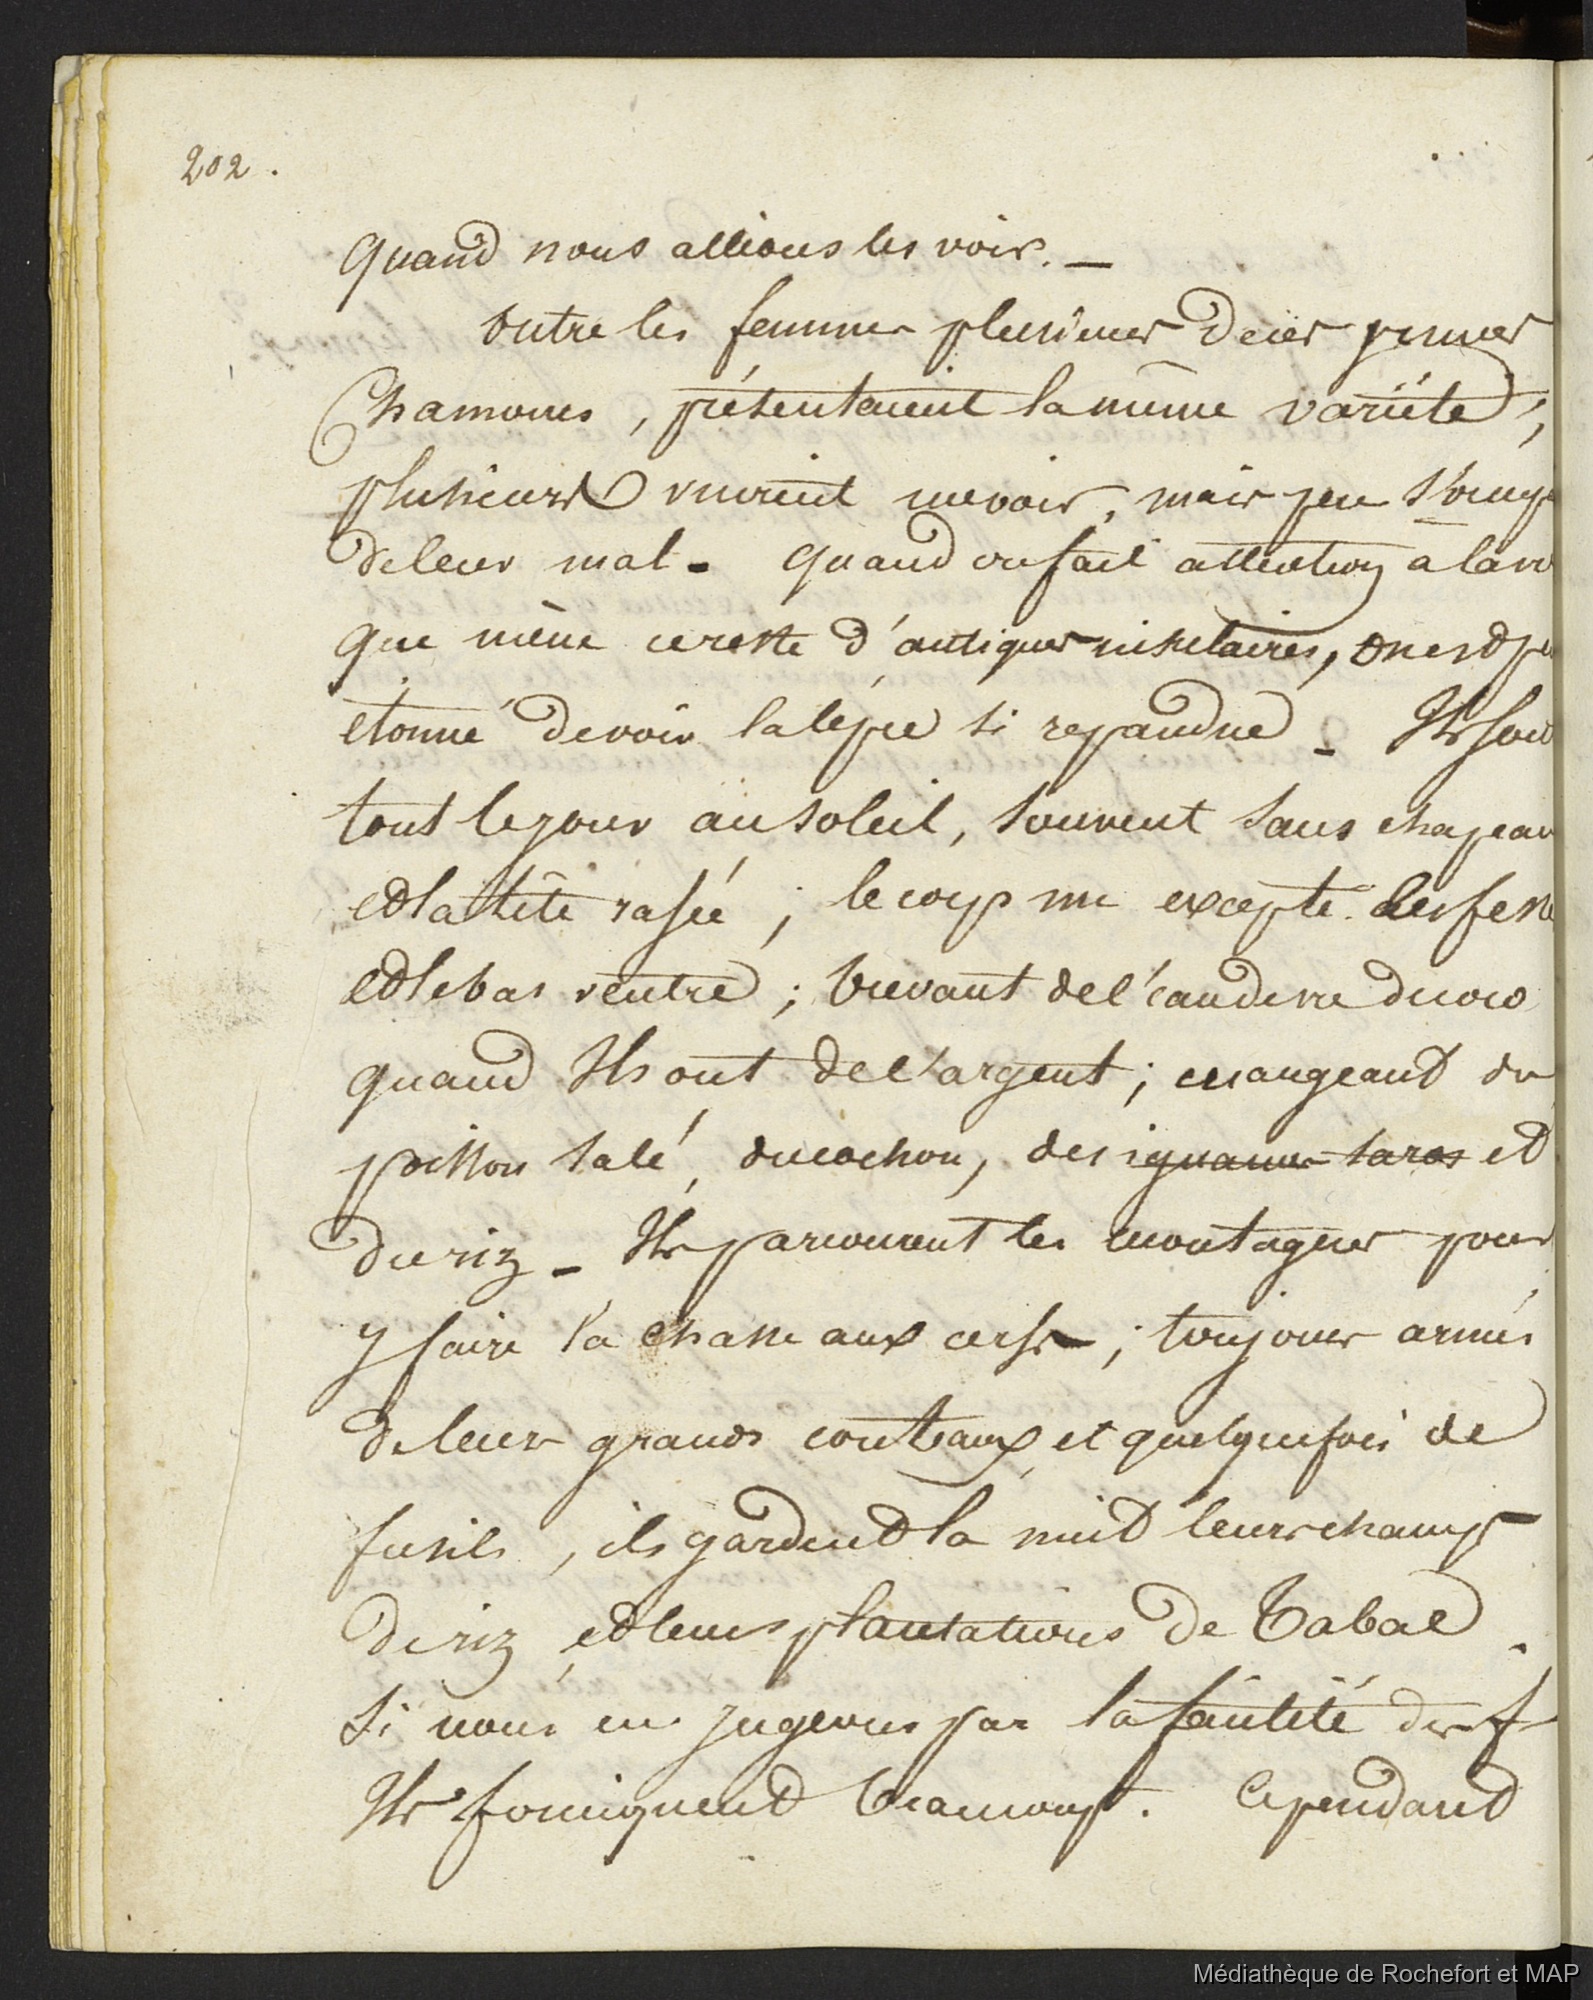 202.
Quand nous allions les voir. —
Outre les femmes plusieurs de ces jeunes
Chamorres, présentaient la même variété,
plusieurs vinrent me voir, mais peu s'occup
de leur mal - quand on fait attention a la
que mène ce reste d'antiques insulaires, on est p
étonné de voir la lèpre si repandue - Ils son
tout le jour au soleil, souvent sans chapeau
et la tête rasée ; le corps nu excepté les fesse
et le bas ventre ; buvant de l'eau de vie de coco
quand Ils ont de l'argent ; mangeant du
poisson salé, du cochon, des ignames taros et
du riz - Ils parcourent les montagnes pour
y faire la chasse aux cerfs ; toujours armés
de leur grands couteaux, et quelquefois de
fusils, ils gardent la nuit leurs champs
de riz, et leurs plantations de Tabac.
Si nous en jugeons par la des f
Ils forniquent beaucoup. Cependant
Médiathèque de Rochefort et MAP